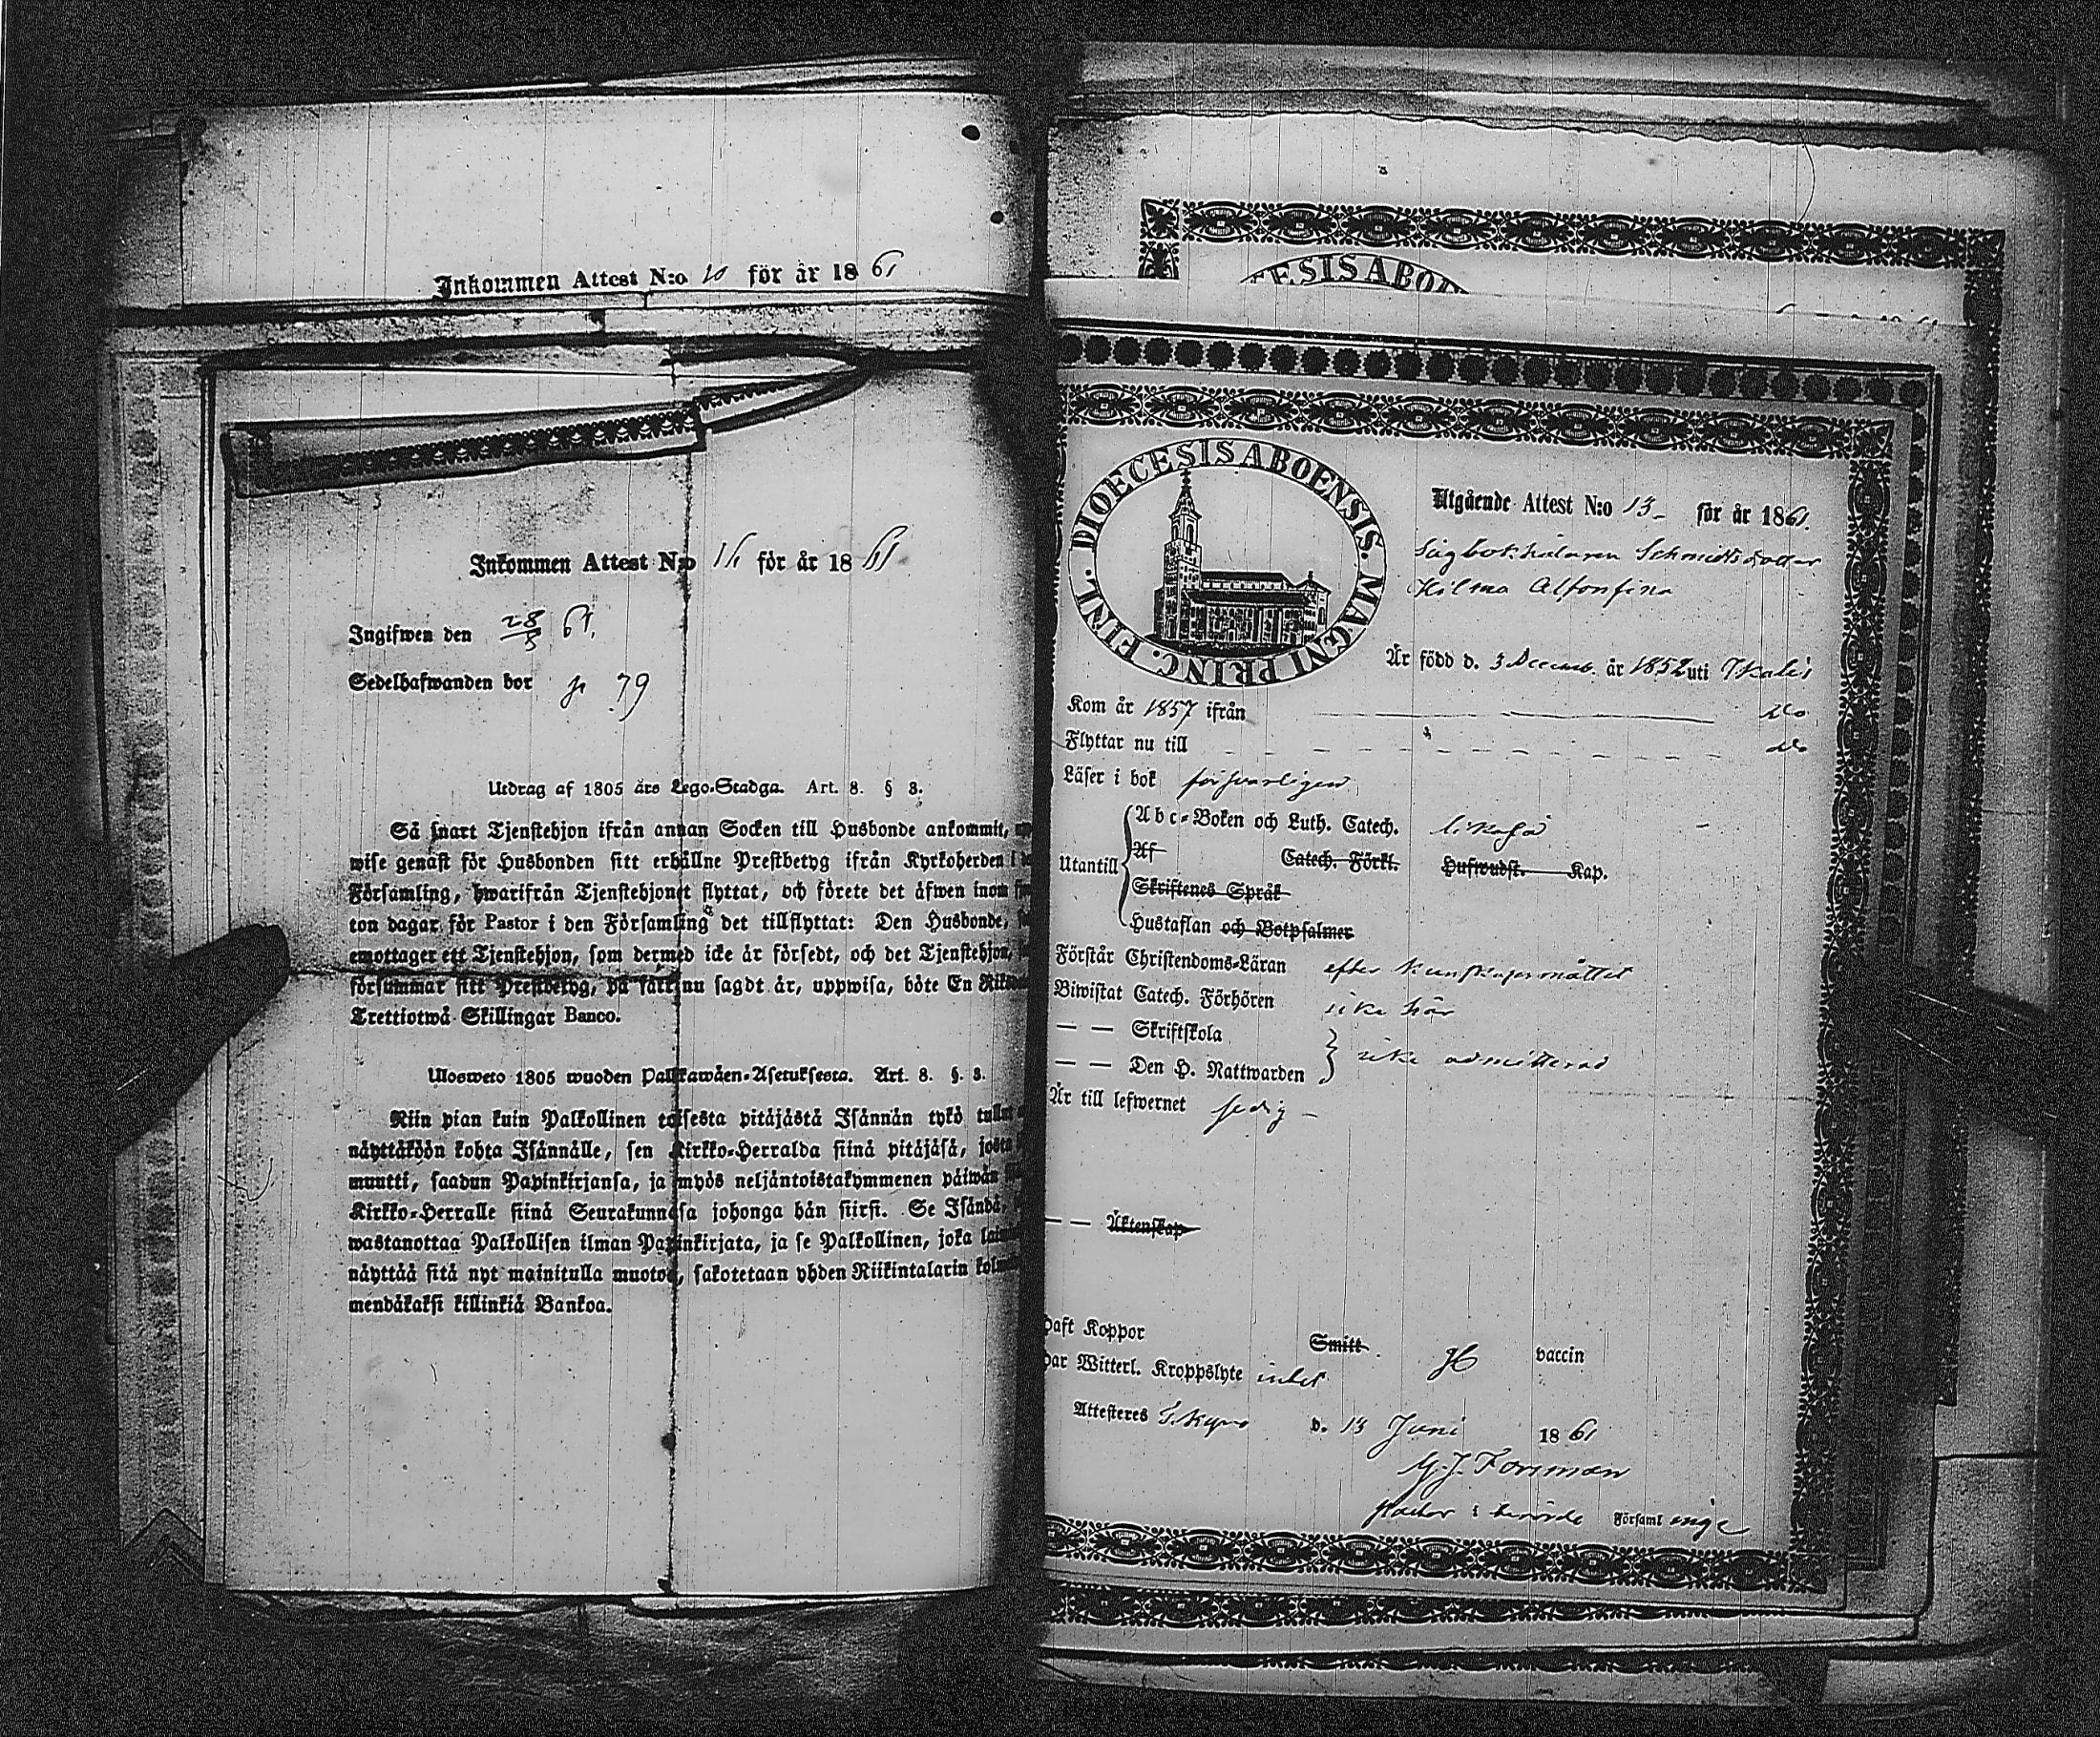 Inkommen Attest N:o 10 för år 1861
Inkommen Attest N:o 16 för år 1861
Ingifwen den 28/8 61.
Sedelhafwanden bor p 79
Utdrag af 1805 års Lego-Stadga. Art. 8. § 3.
Så snart Tjenstehjon ifrån annan Socken till Husbonde ankommit,
wise genast för Husbonden sitt erhållne Prestbetyg ifrån Kyrkoherden i
Församling, hwarifrån Tjenstehjonet flyttat, och förete det äfwen inom
ton dagar för Pastor i den Församling det tillflyttat: Den Husbonde,
emottager ett Tjenstehjon, som dermed icke är försedt, och det Tjenstehjon,
försummar sitt Prestbetyg, på sätt nu sagdt är, uppwisa, böte En
Trettiotwå Skillingar Banco.
Ulosweto 1805 wuoden Palkkawäen-Asetuksesta. Art. 8. §. 3.
Niin pian kuin Palkollinen toisesta pitäjästä Isännän tykö tullut
näyttäköön kohta Isännälle, sen Kirkko-Herralda siinä pitäjäsä, josta
muutti, saadun Papinkirjansa, ja myös neljäntoistakymmenen päiwän
Kirkko-Herralle siinä Seurakunnasa johonga hän siirsi. Se Isändä,
wastanottaa Palkollisen ilman Papinkirjata, ja se Palkollinen, joka
näyttää sitä nyt mainitulla muotoa, sakotetaan yhden Riikintalarin
mendäkaksi killinkiä Bankoa.
ESIS ABO
DIOECESIS ABOENSIS. MAGNI PRINC. FINL.
Utgående Attest N:o 13 för år 1861.
Sågbokhålaren Schmidts dotter
Hilma Alfonsina
Är född d. 3 Decemb. år 1852 uti Ikalis
Kom år 1857 ifrån do
Flyttar nu till do
Läser i bok försvarligen
Utantill
Abc-Boken och Luth. Catech. likaså
Af Catech. Förkl. Hufwudst. Kap.
Skriftenes Språk
Hustaflan och Botpsalmer
Förstår Christendoms-Läran efter kunskapsmåttet
Biwistat Catech. Förhören icke här
— — Skriftskola
— — Den H. Nattwarden } icke admitterad
Är till lefwernet sedig
— — Äktenskap
Haft Koppor Smitt vaccin
Har Witterl. Kroppslyte intet
Attesteres T.kyro d. 13 Juni 1861
Pastor i berörde Församlinge